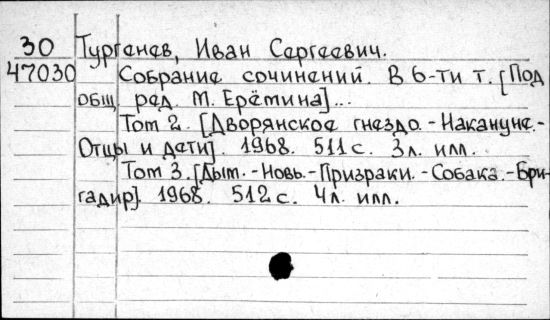 30 Тургенев, Иван Сергеевич.
47030 Собрание сочинений. В 6-ти т. [Под
общ. ред. М. Ерёмина]...
Том 2. [Дворянское гнездо.-Накануне.-
Отцы и дети]. 1968. 511 с. 3 л. илл.
Том 3. [Дым.-Новь.-Призраки.-Собака.-Бри-
гадир]. 1968. 512 с. 4 л. илл.